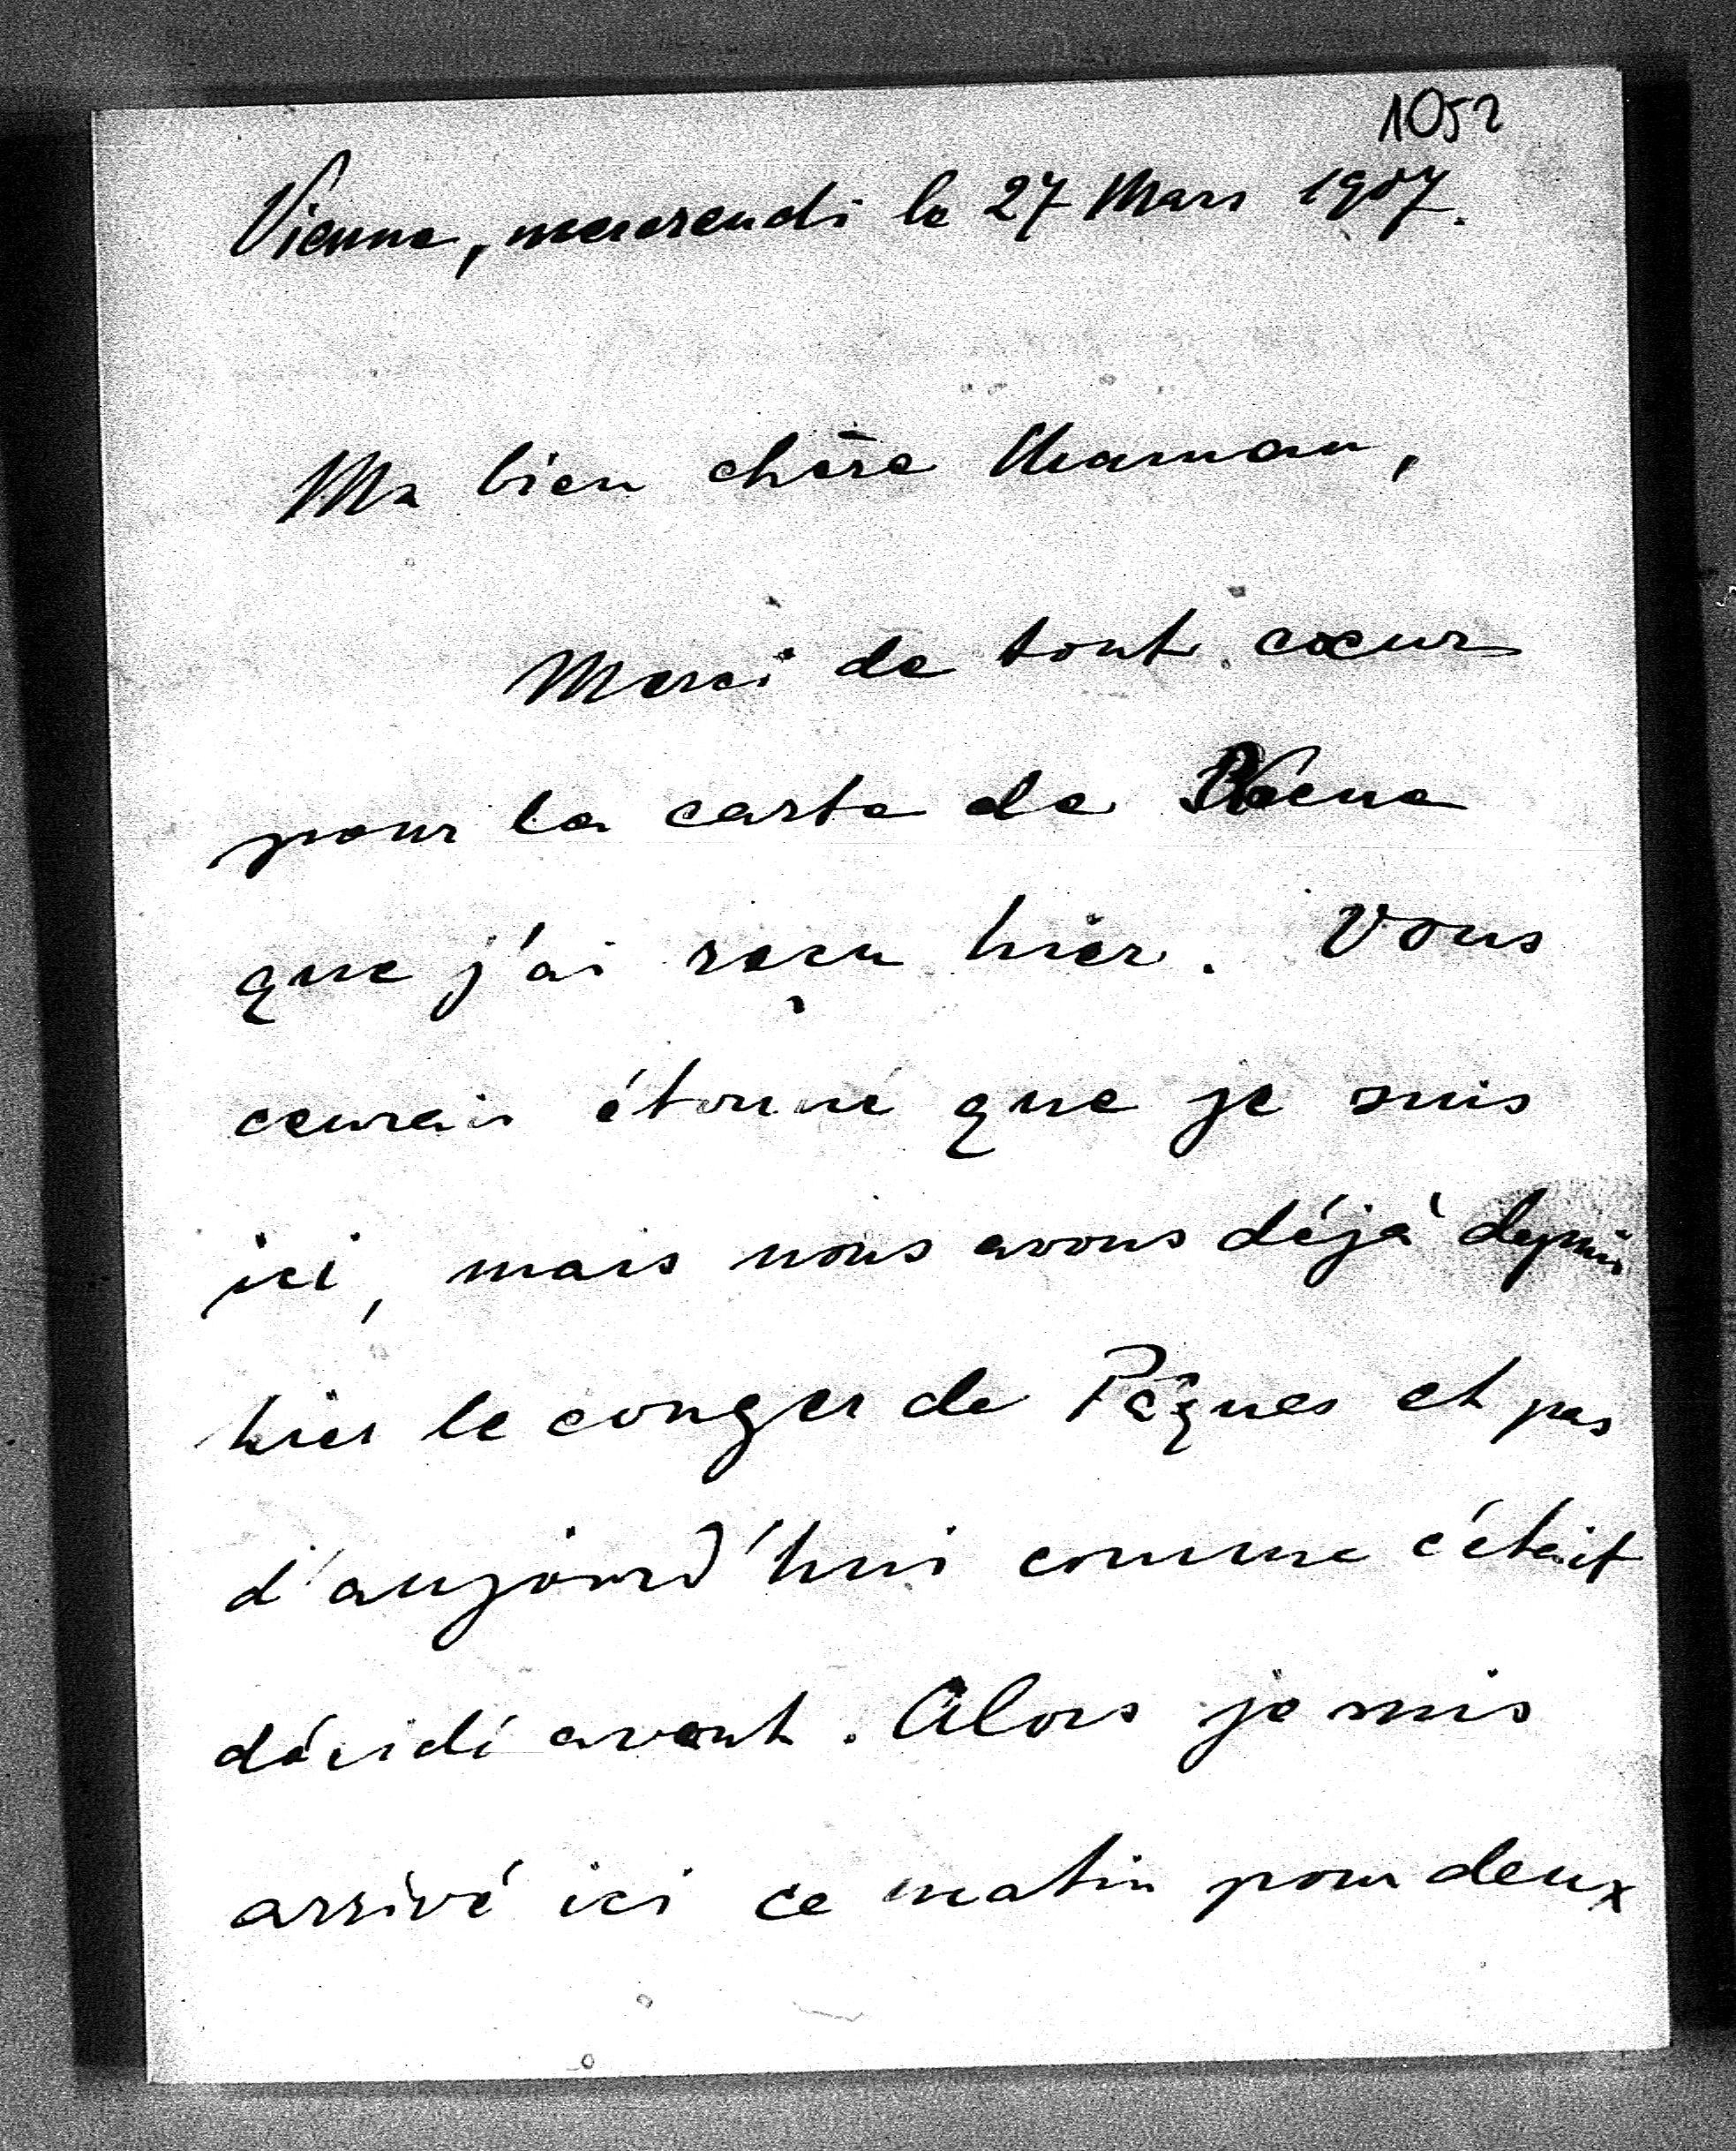 1052
Vienne, mercredi le 27 Mars 1907.
Ma bien chère Maman,
Merci de tout cœur
pour la carte de
que j'ai reçu hier. Vous
étonné que je suis
ici, mais nous avons déjà depuis
hier le conger de Pâques et pas
d'aujourd'hui comme c'était
décidé avant. Alors je suis
arrivé ici ce matin pour deux